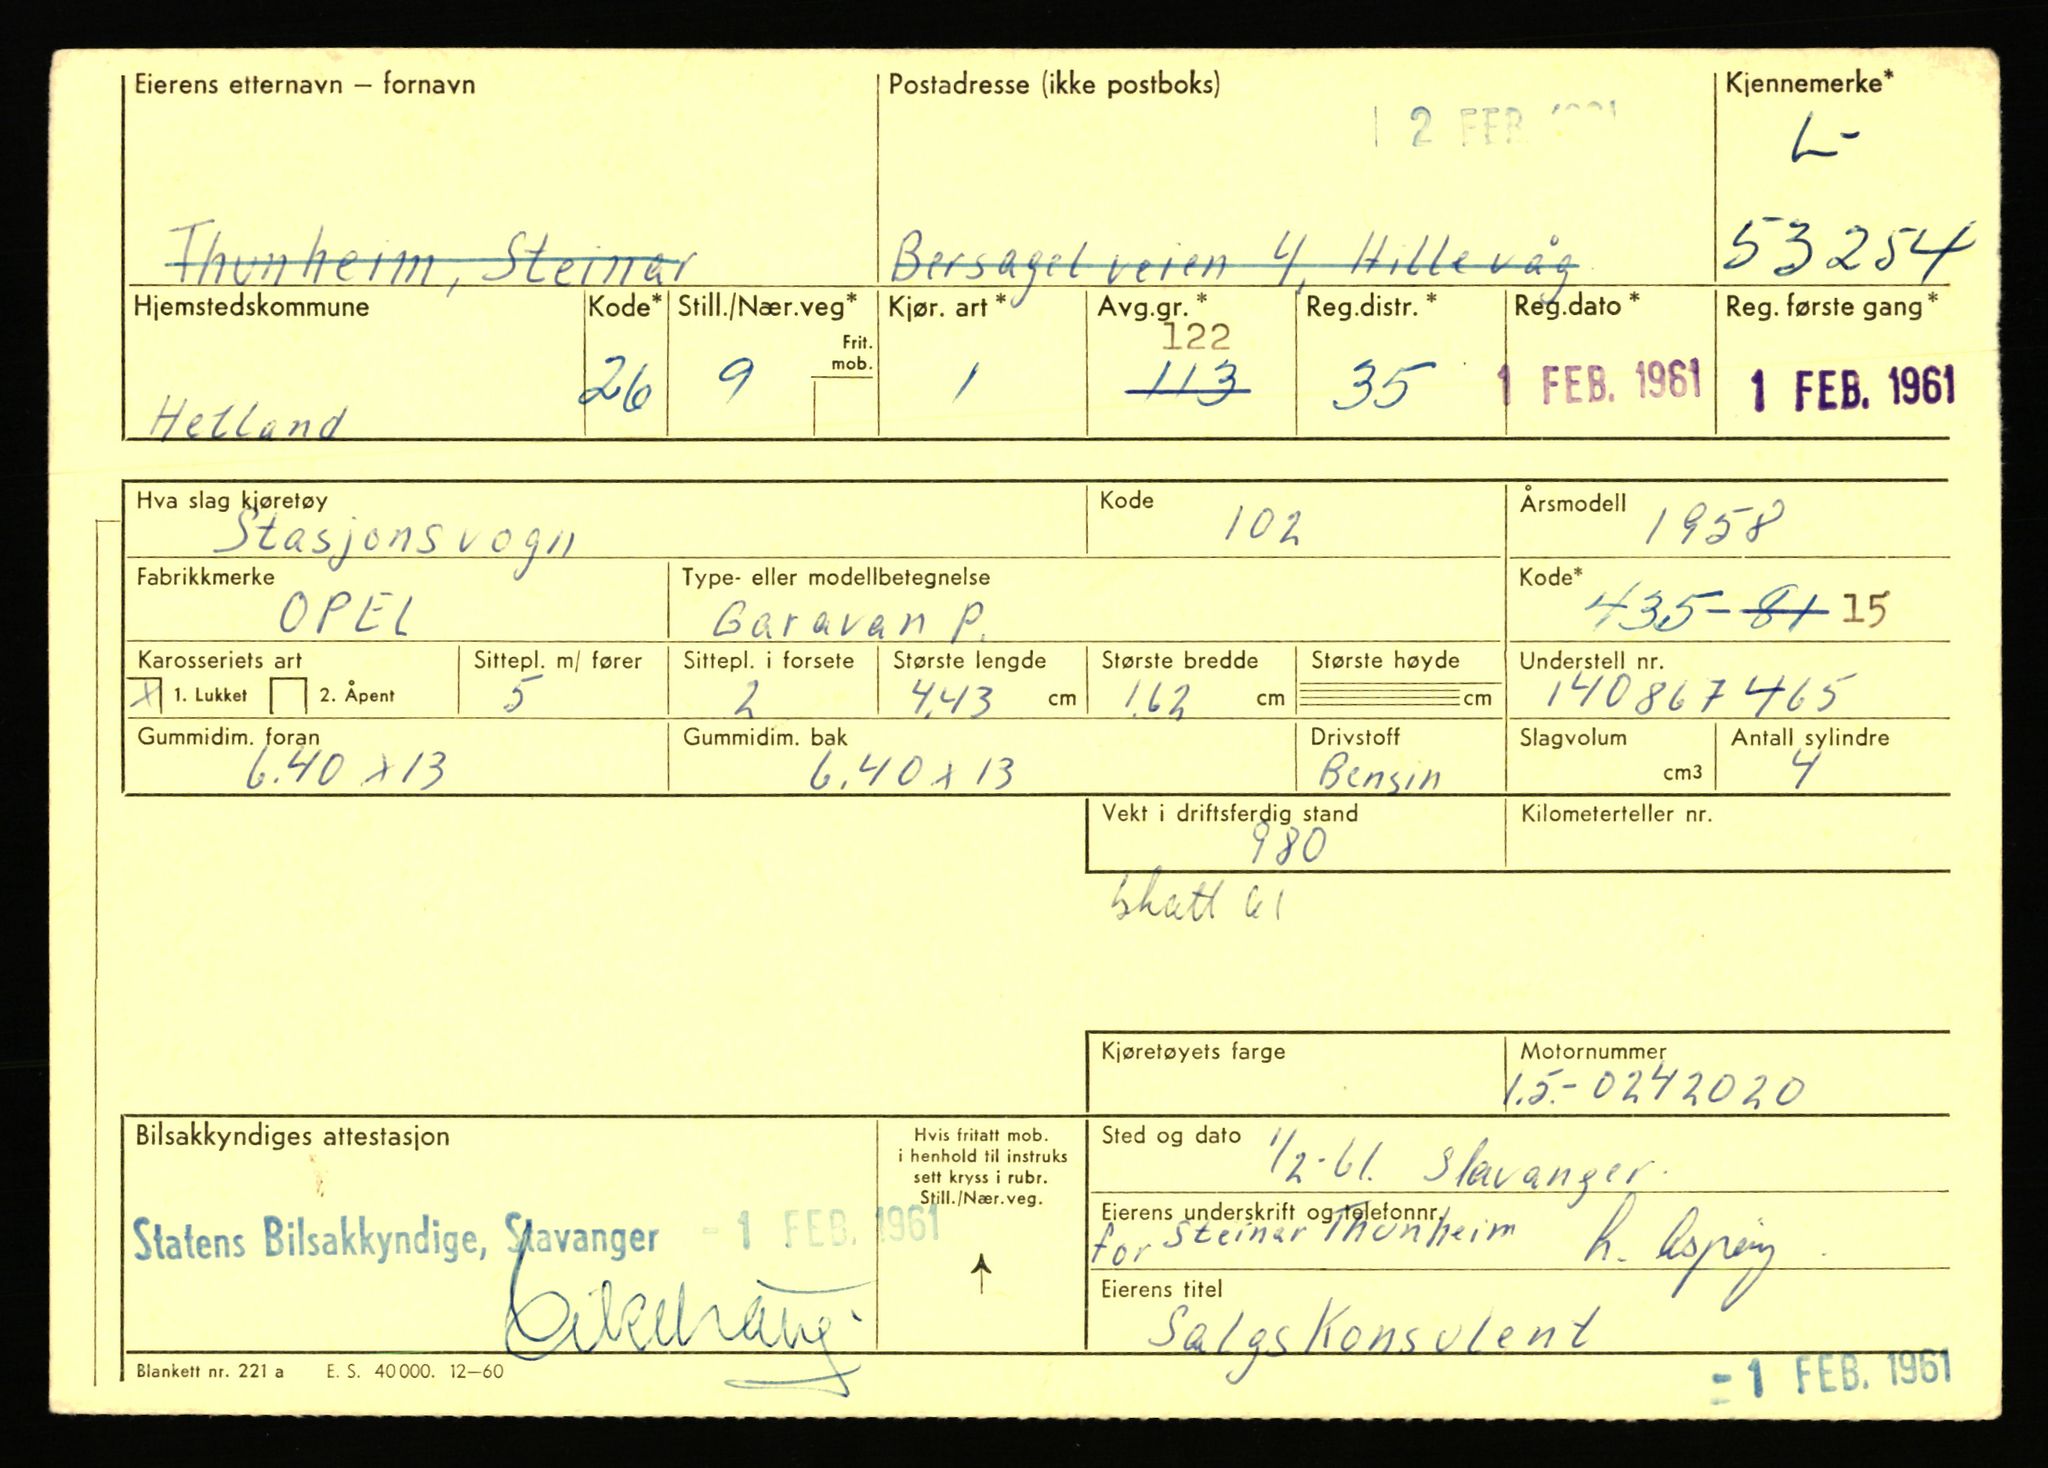 Eierens etternavn – fornavn
Postadresse (ikke postboks)
Kjennemerke*
12 FEB 1961
L-
Thunheim, Steinar
Bersagel veien 4, Hillevåg
53254
Hjemstedskommune
Kode*
Still./Nær.veg*
Frit. mob.
Kjør. art*
Avg.gr.*
Reg.distr.*
Reg.dato*
Reg. første gang*
122
Hetland
26
9
1
113
35
1 FEB. 1961
1 FEB. 1961
Hva slag kjøretøy
Stasjonsvogn
Kode
102
Årsmodell
1958
Fabrikkmerke
OPEL
Type- eller modellbetegnelse
Caravan P.
Kode*
435-81 15
Karosseriets art
x 1. Lukket 2. Åpent
Sittepl. m/ fører
5
Sittepl. i forsete
2
Største lengde
4.43 cm
Største bredde
1.62 cm
Største høyde
cm
Understell nr.
140867465
Gummidim. foran
6.40 x 13
Gummidim. bak
6.40 x 13
Drivstoff
Bensin
Slagvolum
cm3
Antall sylindre
4
Vekt i driftsferdig stand
980
Kilometerteller nr.
skatt 61
Kjøretøyets farge
Motornummer
1.5.-0242020
Bilsakkyndiges attestasjon
Statens Bilsakkyndige, Stavanger -1 FEB. 1961
Hvis fritatt mob.
i henhold til instruks
sett kryss i rubr.
Still./Nær.veg.
Sted og dato
1/2-61. Stavanger.
Eierens underskrift og telefonnr.
for Steinar Thunheim
Eierens titel
Salgskonsulent
Blankett nr. 221 a E. S. 40 000. 12–60
-1 FEB. 1961